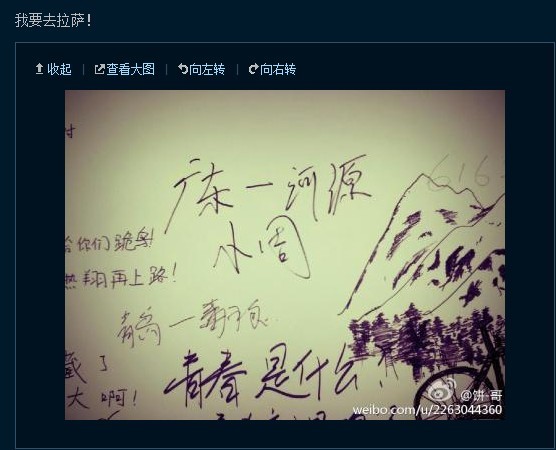 我要去拉萨!
收起 | 查看大图 | 向左转 | 向右转
616
广东一河源
小周
给你们跪
热翔再上路!
青岛一
了
青春是什么
大啊!
@饼·哥
weibo.com/u/2263044360